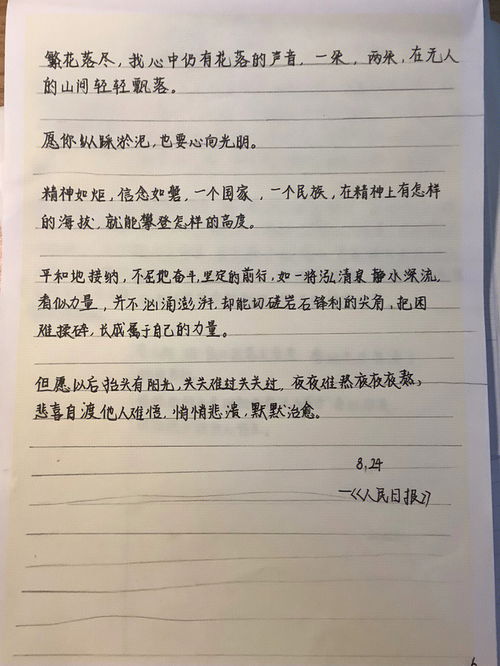 繁花落尽，我心中仍有花落的声音，一朵，两朵，在无人
的山间轻轻飘落。
愿你纵踩淤泥，也要心向光明。
精神如炬，信念如磐，一个国家，一个民族，在精神上有怎样
的海拔，就能攀登怎样的高度。
平和地接纳，不屈地奋斗，坚定的前行，如一将泓清泉静水深流，
看似力量，并不汹涌澎湃，却能切磋岩石锋利的尖角，把困
难揉碎，长成属于自己的力量。
但愿以后抬头有阳光，关关难过关关过，夜夜难熬夜夜熬，
悲喜自渡他人难悟，悄悄悲溃，默默治愈。
8.24
—《人民日报》